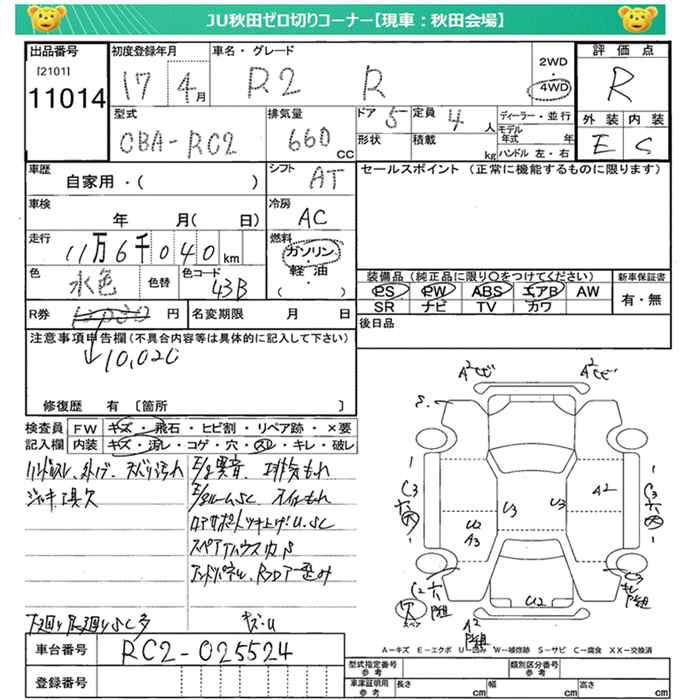 JU秋田ゼロ切りコーナー【現車：秋田会場】
出品番号
[2101]
11014
初度登録年月
17 4月
車名・グレード
R2 R
2WD
・
4WD
評価点
R
型式
CBA-RC2
排気量
660 CC
ドア 5
定員 4 人
形状
積載 kg
ディーラー・並行
モデル年式 年
ハンドル 左・右
外装 内装
E C
車歴
自家用・( )
シフト AT
車検
年 月( 日)
冷房 AC
走行
11万6千040 km
燃料
ガソリン
・
軽油
・
( )
色 水色
色替
色コード 43B
R券 円
10,020
名変期限 月 日
セールスポイント (正常に機能するものに限ります)
装備品(純正品に限り○をつけてください)
PS PW ABS エアB AW
SR ナビ TV カワ
新車保証書
有・無
後日品
注意事項申告欄(不具合内容等は具体的に記入して下さい)
修復歴 有 〔箇所 〕
検査員記入欄
FW キズ・飛石・ヒビ割・リペア跡・×要
内装 キズ・汚レ・コゲ・穴・スレ・キレ・破レ
ハンドルスレ、
ジャッキ工具欠
E/g異音、排気もれ
E/gルームSC、オイルもれ
ロアサポートツキ上げU、SC
下廻り足廻りSC多
キズ・U
A2
A2
C3
U3
U3
A2
U2
A3
C3
C2
U2
A2
スペア
車台番号
RC2-025524
登録番号
A－キズ E－エクボ U－凹み W－補修跡 S－サビ C－腐食 XX－交換済
型式指定番号
参考
類別区分番号
参考
車庫証明用
参考
長さ cm
幅 cm
高さ cm